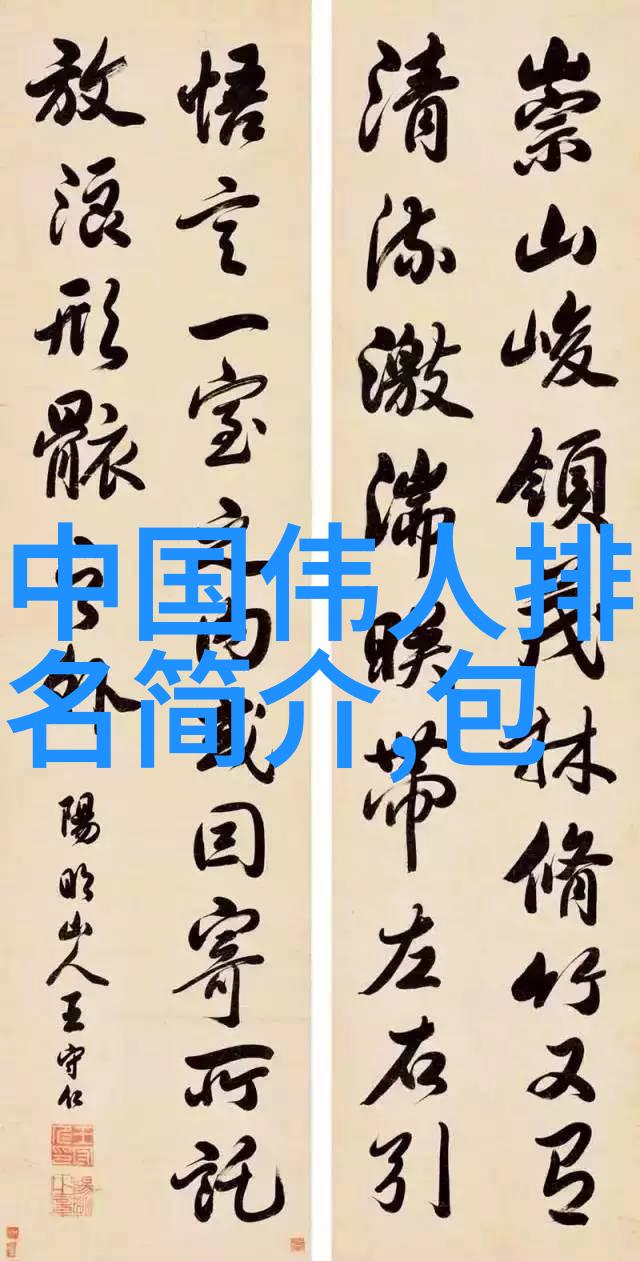 崇山峻領茂林脩竹又有
清流激湍暎帶左右引
悟言一室之內或因寄所託
放浪形骸之外
陽明山人王守仁
中国伟人排
名简介,包